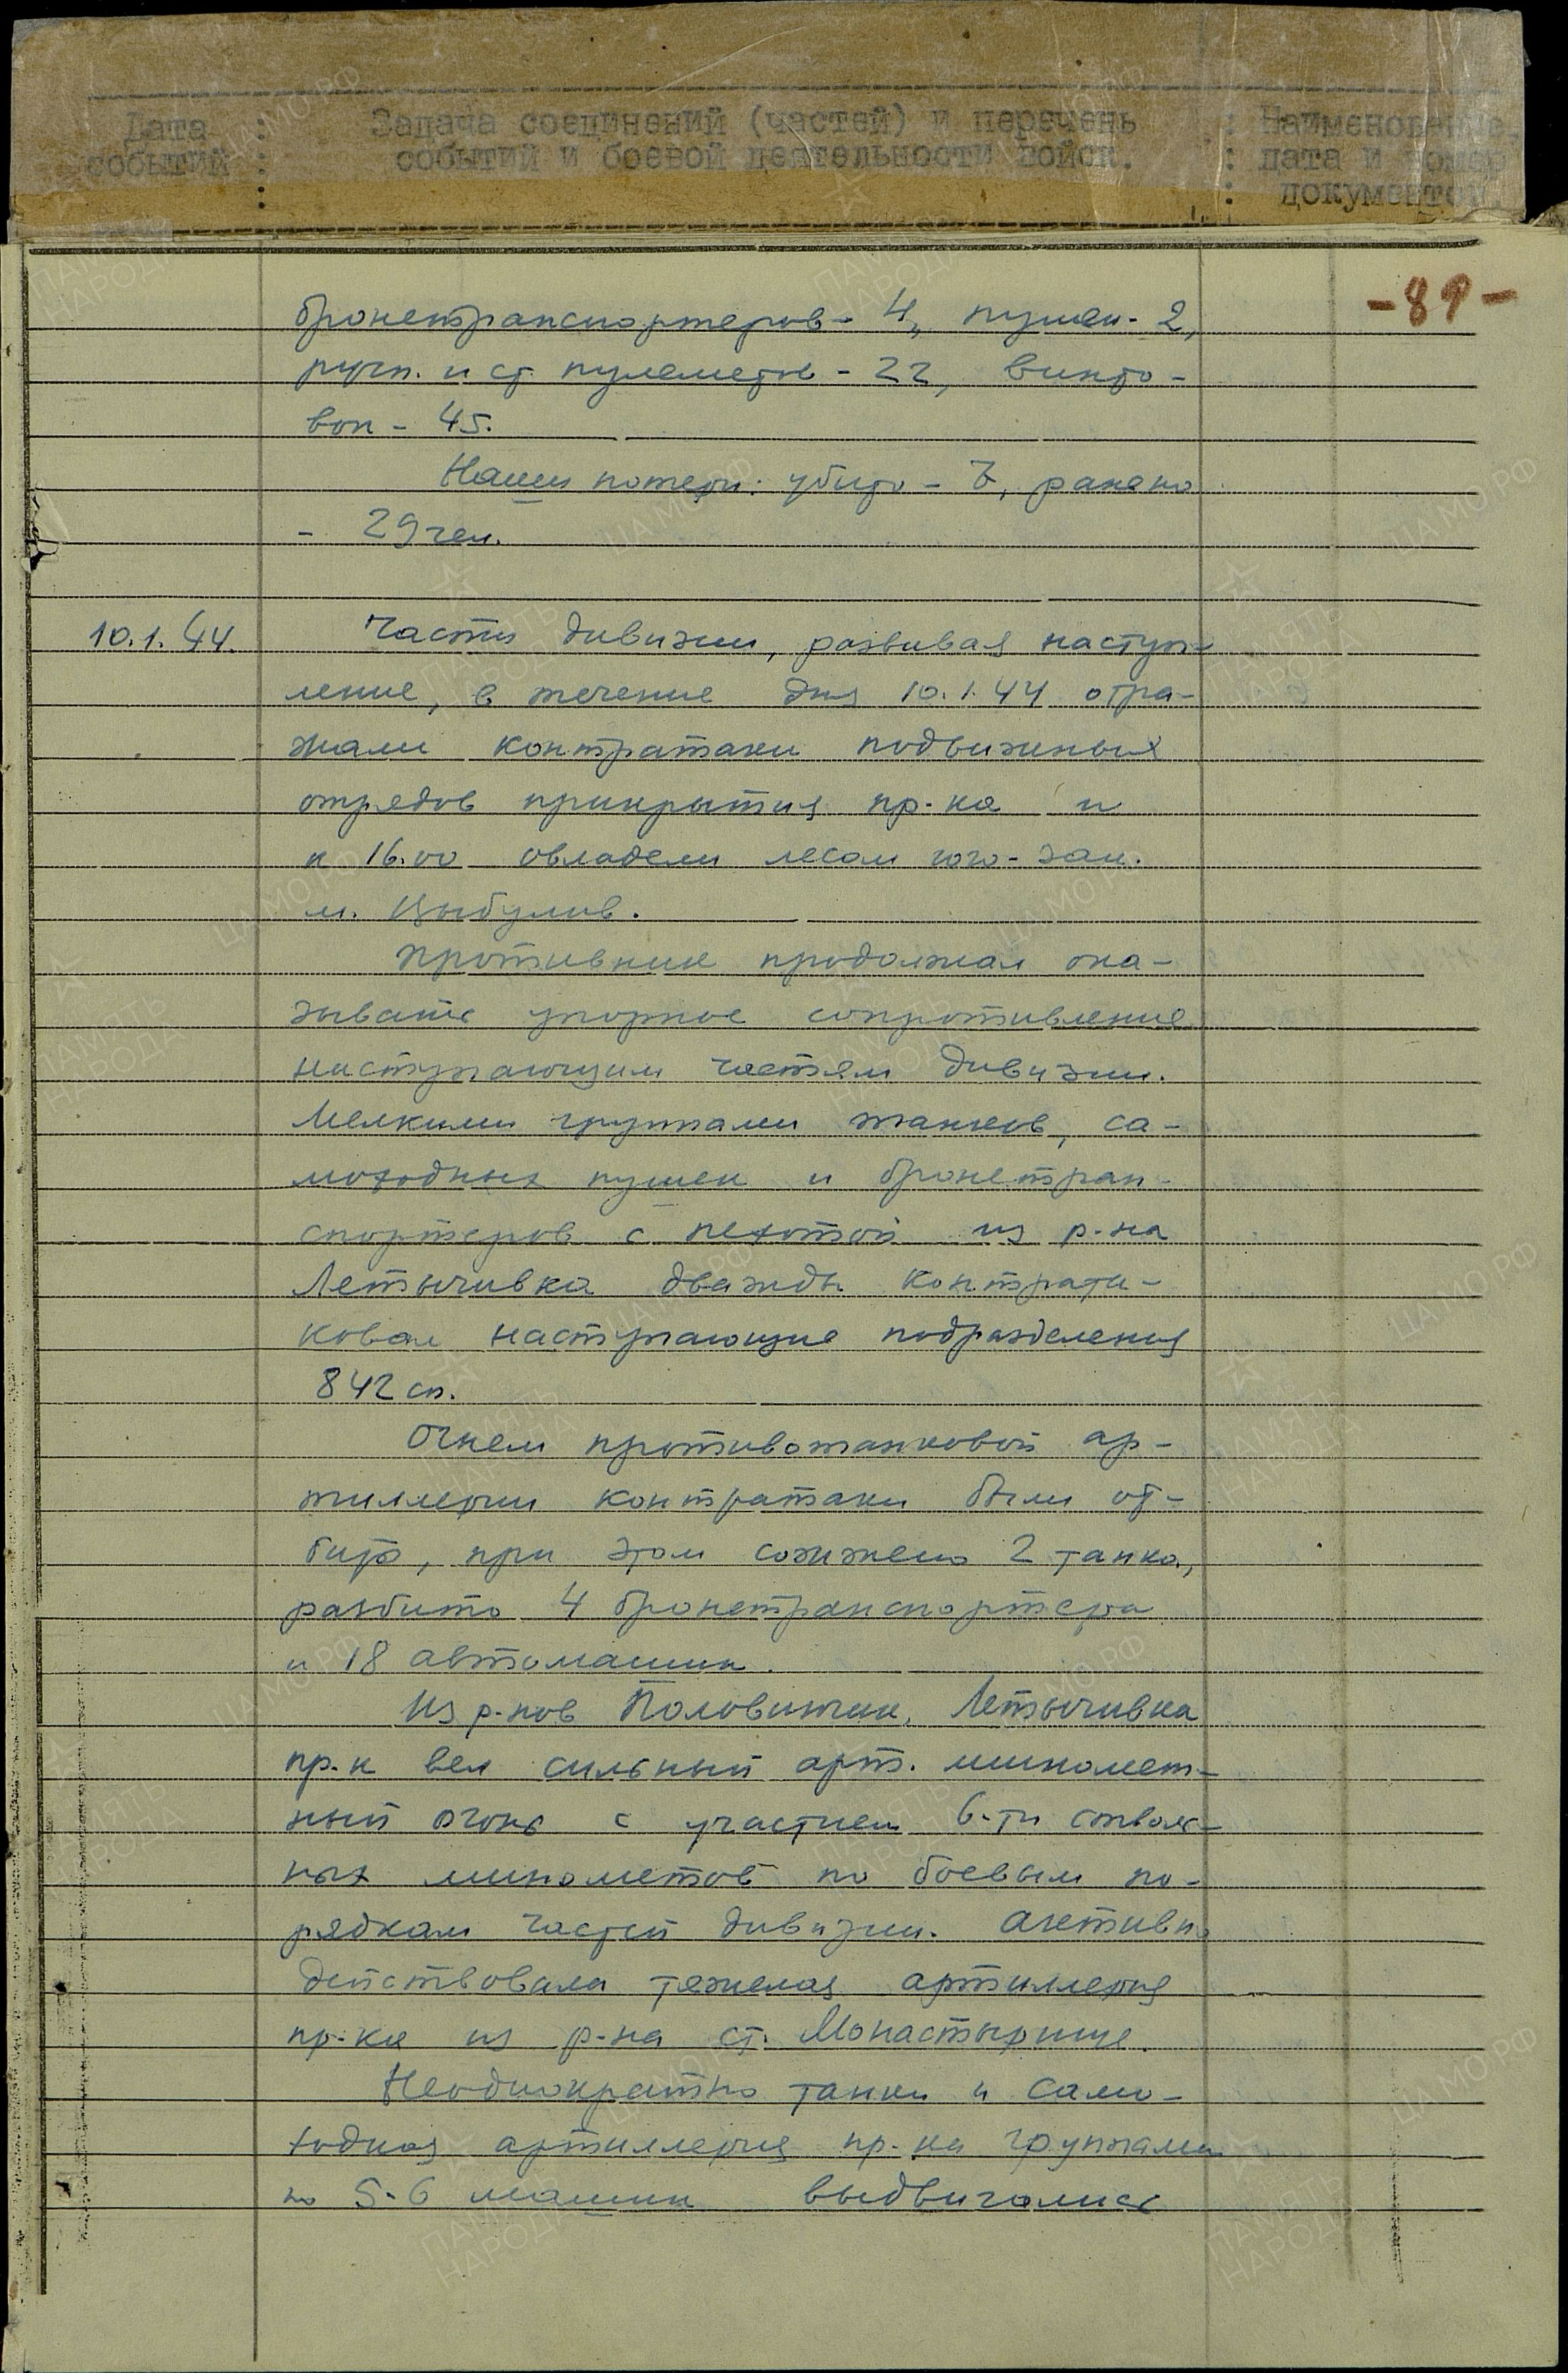 Дата событий : Задача соединений (частей) и перечень событий и боевой деятельности войск. : Наименование, дата и номер документов
-89-
бронетранспортеров - 4, пушек - 2,
ручн. и ст. пулеметов - 22, винто-
вок - 45.
Наши потери: убито - 7, ранено
- 29 чел.
10.1.44. Части дивизии, развивая наступ-
ление, в течение дня 10.1.44 отра-
жали контратаки подвижных
отрядов прикрытия пр-ка и
к 16.00 овладели лесом юго-зап.
м. Цыбулив.
Противник продолжал ока-
зывать упорное сопротивление
наступающим частям дивизии.
Мелкими группами танков, са-
моходных пушек и бронетран-
спортеров с пехотой из р-на
Летычивка дважды контрата-
ковал наступающие подразделения
842 сп.
Огнем противотанковой ар-
тиллерии контратаки были от-
биты, при этом сожжено 2 танка,
разбито 4 бронетранспортера
и 18 автомашин.
Из р-нов Половинчик, Летычивка
пр-к вел сильный арт. миномет-
ный огонь с участием 6-ти стволь-
ных минометов по боевым по-
рядкам частей дивизии. Активно
действовала тяжелая артиллерия
пр-ка из р-на ст. Монастырище.
Неоднократно танки и само-
ходная артиллерия пр-ка группами
по 5-6 машин выдвигались